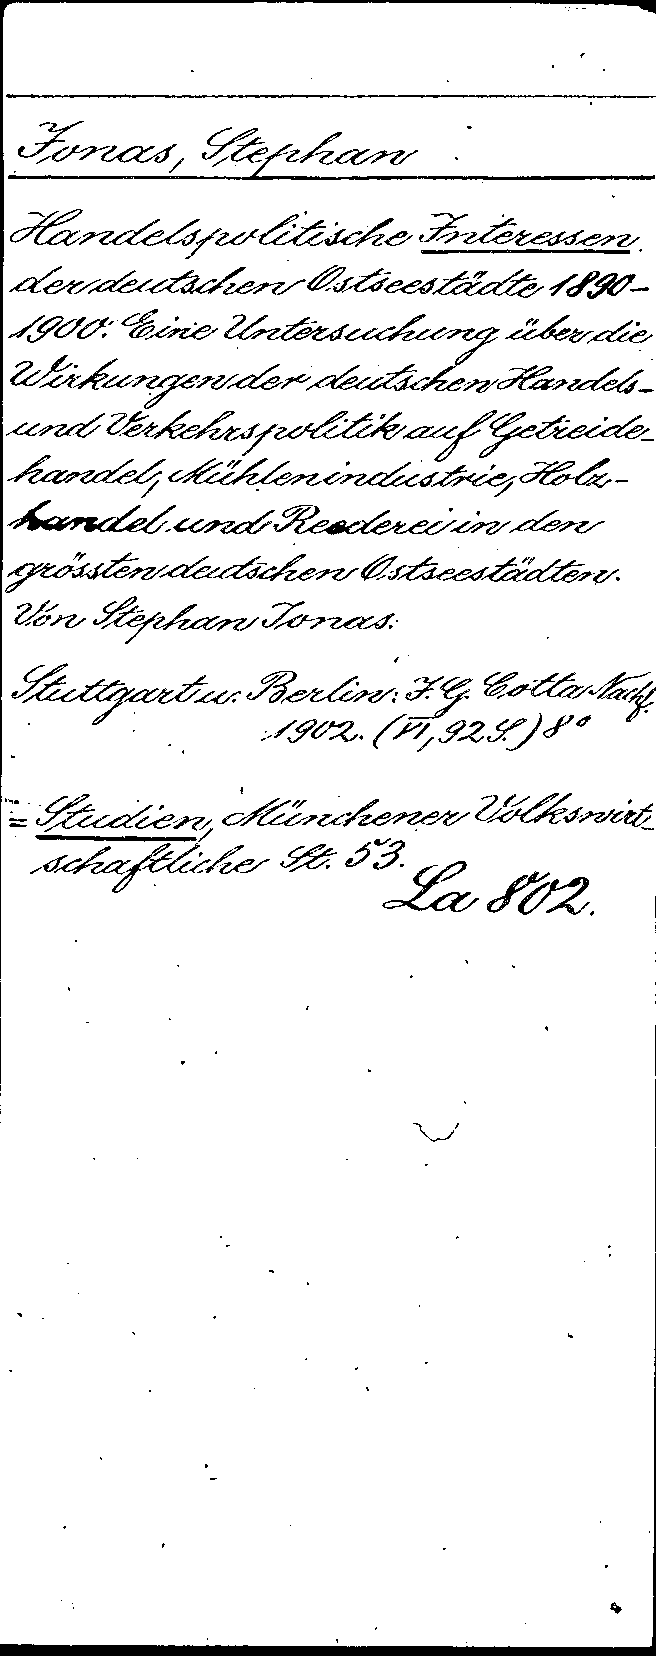 Jonas, Stephan
Handelspolitische Interessen
der deutschen Ostseestädte 1890-
1900. Eine Untersuchung über die
Wirkungen der deutschen Handels-
und Verkehrspolitik auf Getreide-
handel, Mühlenindustrie, Holz-
handel und Reederei in den
grössten deutschen Ostseestädten.
Von Stephan Jonas.
Stuttgart u. Berlin: J. G. Cotta Nachf.
1902. (VI, 92 S.) 8°
= Studien, Münchener Volkswirt-
schaftliche St. 53.
La 802.